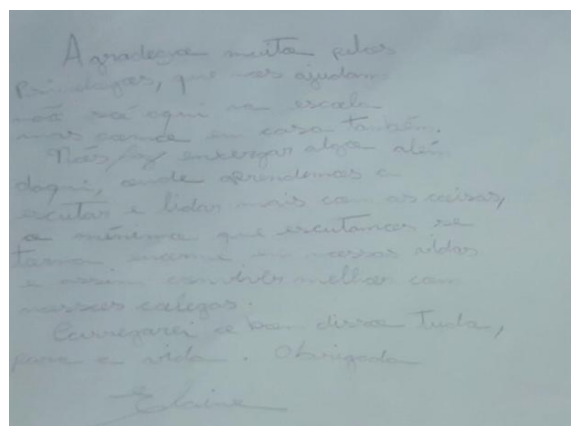 Agradeço muito pelas
Princípios, que nos ajudam
não só aqui na escola
mas como em casa também.
Nós faz enxergar algo além
daqui, onde aprendemos a
escutar e lidar mais com as coisas,
o mínimo que escutamos se
torna enorme em nossas vidas
e assim conviver melhor com
nossos colegas.
Carregarei o bom disso tudo,
para a vida. Obrigada
Elaine